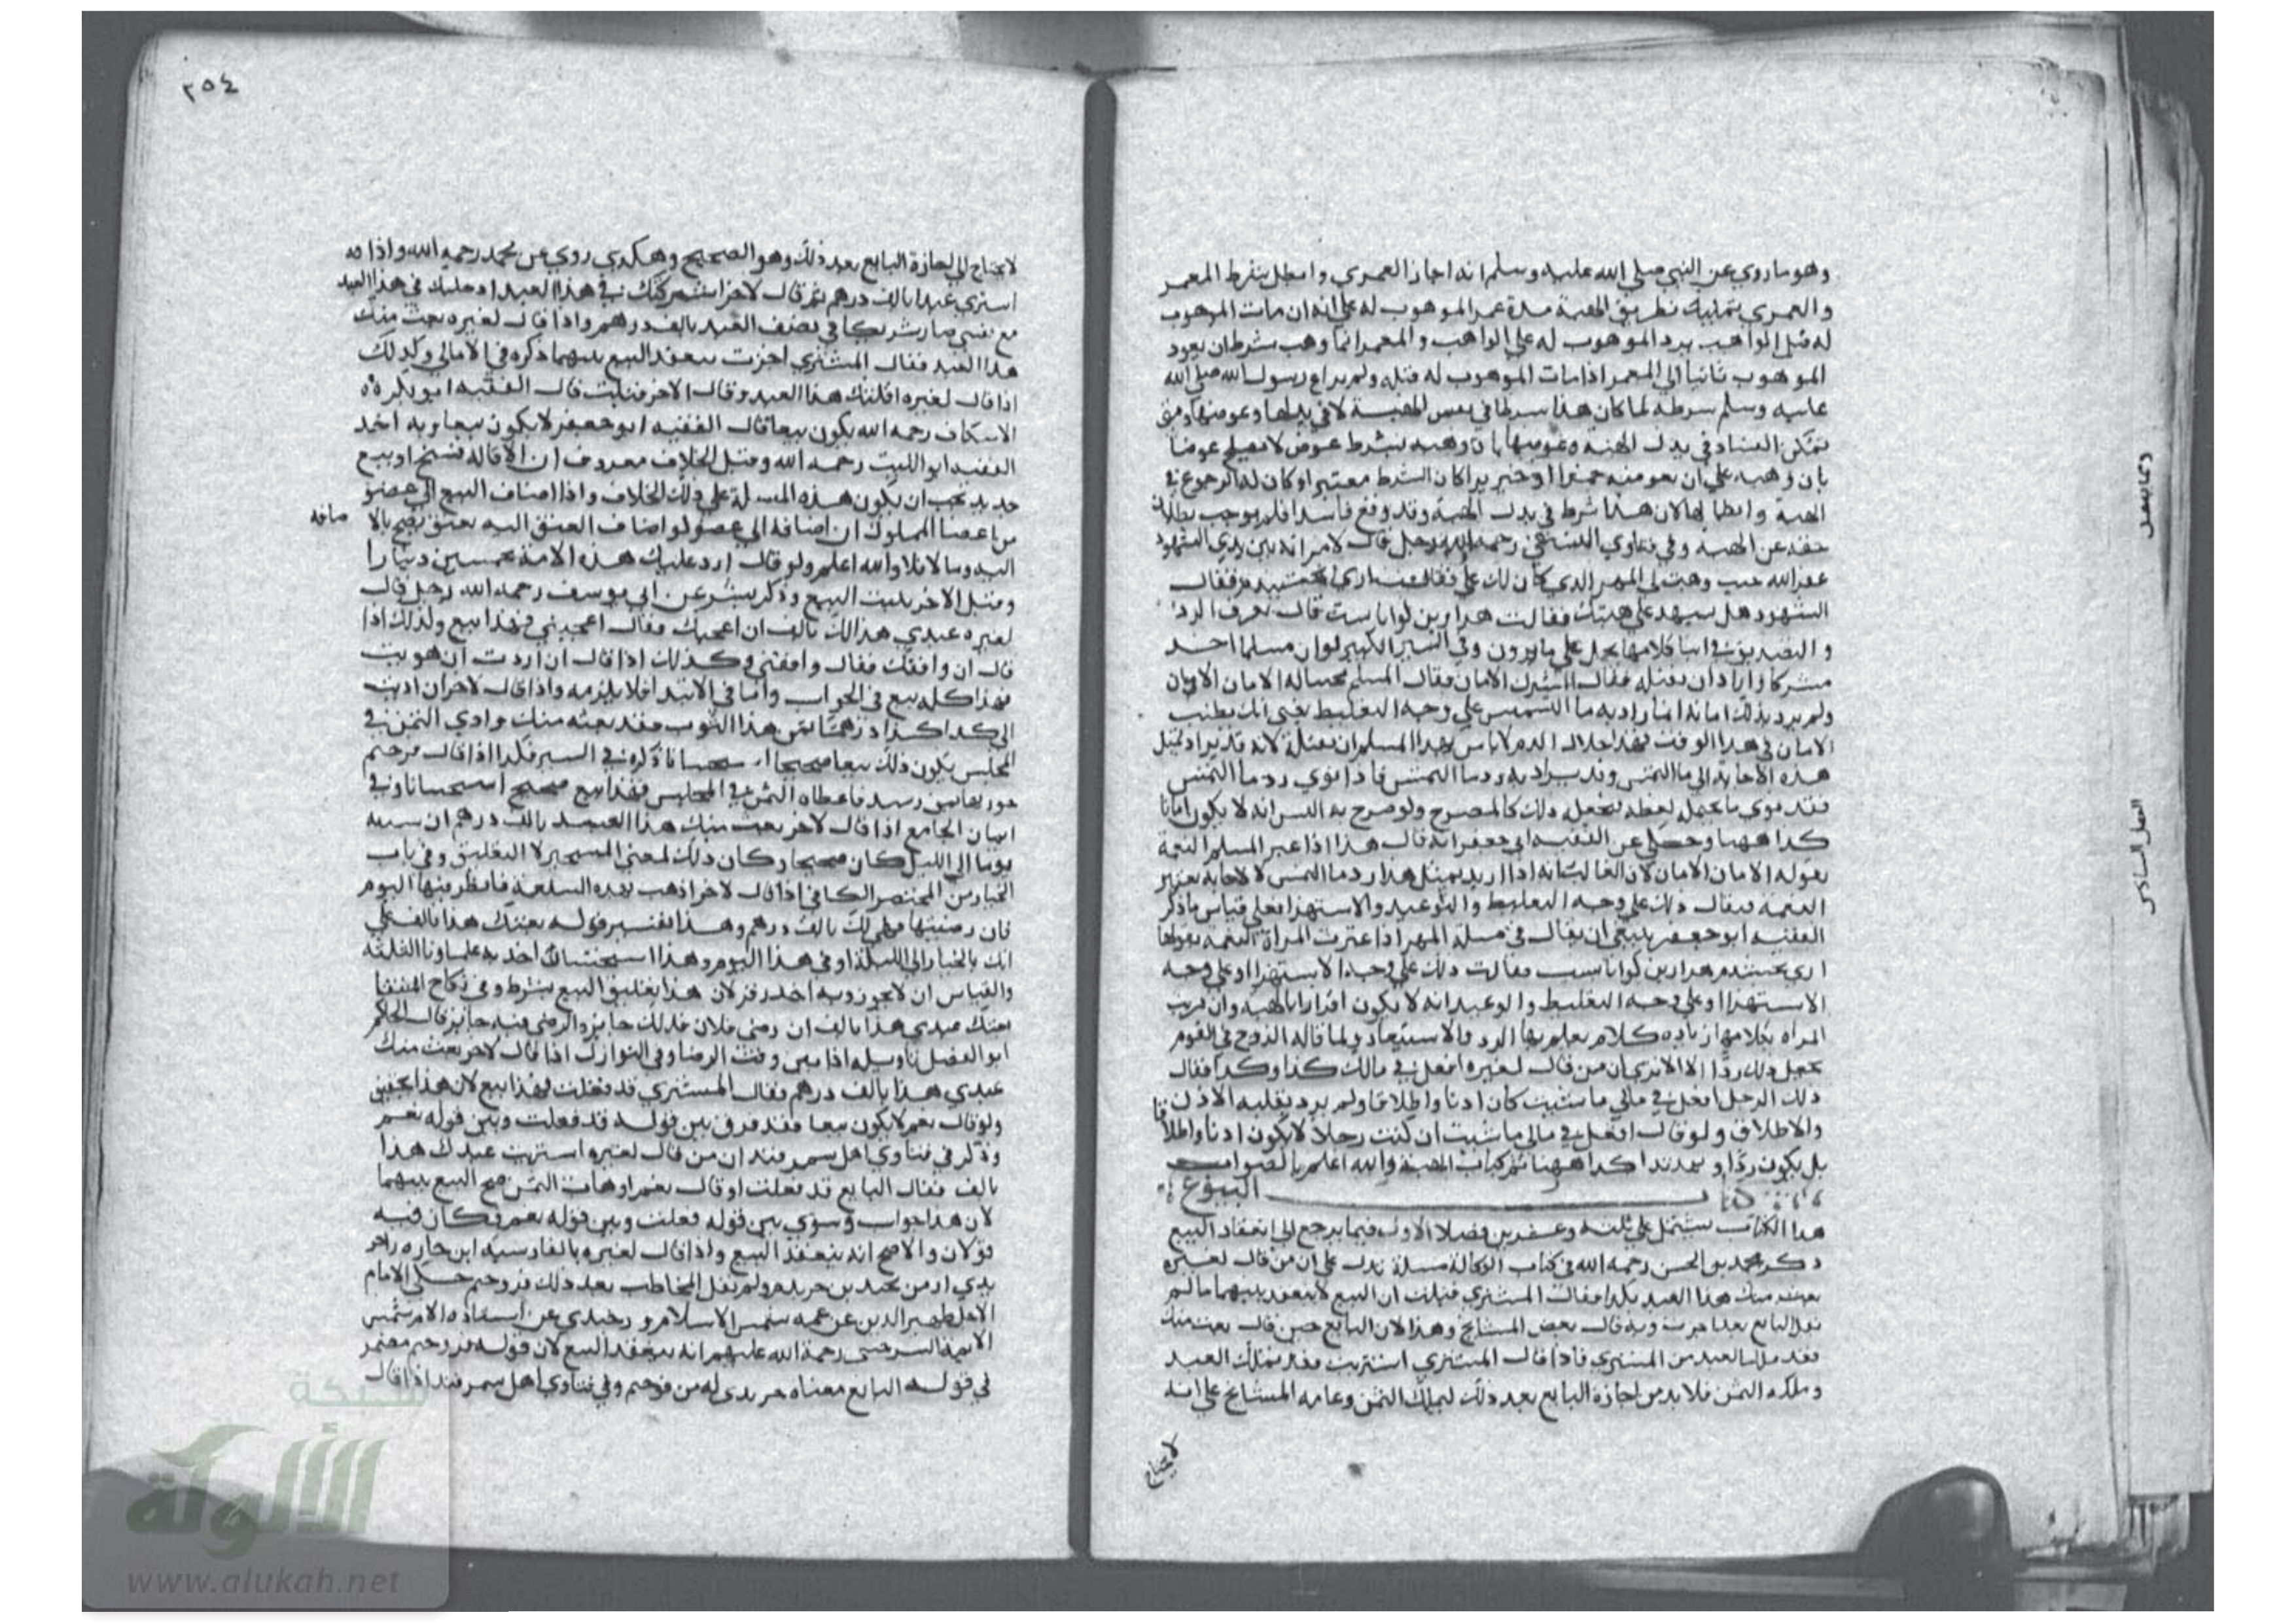 وهو ما روي عن النبي صلى الله عليه وسلم انه اجاز العمري وابطل شرط المعمر
والعمري تمليك بطريق الهبة مدة عمر الموهوب له على انه ان مات الموهوب
له قبل الواهب يرد الموهوب له على الواهب والمعمر انما وهب بشرط ان يعود
الموهوب ثانيا الى المعمر اذا مات الموهوب له قبله ولم يراع رسول الله صلى الله
عليه وسلم شرطه لما كان هذا شرطا في نفس الهبة لا في بدلها وعوضها ومتى
تمكن الفساد في بدل الهبة وعوضها بان وهبه بشرط عوض لا يصلح عوضا
بان وهبه على ان يعوضه خمرا او خنزيرا كان الشرط معتبرا وكان له الرجوع في
الهبة وابطالها لان هذا شرط في بدل الهبة وقد وقع فاسدا فلم يوجب بطلان
حقه عن الهبة وفي فتاوي النسفي رحمه الله رجل قال لامراته بين يدي الشهود
غفر الله حيث وهبت لي المهر الذي كان لك علي فقالت
الشهود هل نشهد على هبتك فقالت
والتصديق في اثناء كلامها يحمل على ما يرون وفي السير الكبير لو ان مسلما اخذ
مشركا واراد ان يقتله فقال المشرك الامان فقال المسلم مجيبا له الامان الامان
ولم يرد بذلك امانه انما اراد به ما التمس على وجه التغليظ يعني انك تطلب
الامان في هذا الوقت فهذا حلال الدم لا باس لهذا المسلم ان يقتله لانه قد يراد بمثل
هذه الاجابة الى ما التمس وقد يراد به رد ما التمس فاذا نوى رد ما التمس
فقد نوى ما يحتمل لفظه فيجعل ذلك كالمصرح ولو صرح به اليس انه لا يكون امانا
كذا ههنا وحكي عن الفقيه ابي جعفر انه قال هذا اذا غير المسلم النغمة
بقوله الامان الامان لان الغالب انه اذا اريد بمثل هذا رد ما التمس لا لاجابة بغير
النغمة فيقال ذلك على وجه التغليظ والتوعيد والاستهزا فعلى قياس ما ذكر
الفقيه ابو جعفر ينبغي ان يقال في مسلة المهر اذا غيرت المراة النغمة بقولها
فقالت ذلك على وجه الاستهزا او على وجه
الاستهزا او على وجه التغليظ والوعيد انه لا يكون اقرارا بالهبة وان قرنت
المراه بكلامها زيادة كلام يعلم بها الرد والاستبعاد ولما قاله الزوج في القوم
يجعل ذلك ردا الا ترى ان من قال لغيره افعل في مالك كذا وكذا فقال
ذلك الرجل افعل في مالي ما شئت كان اذنا واطلاقا ولم يرد بقلبه الاذن
والاطلاق ولو قال افعل في مالي ما شئت ان كنت رجلا لا يكون اذنا واطلاقا
بل يكون ردا وتهديدا كذا ههنا تم كتاب الهبة والله اعلم بالصواب
كتاب البيوع
هذا الكتاب يشتمل على ثلثة وعشرين فصلا الاول فيما يرجع الى انعقاد البيع
ذكر محمد بن الحسن رحمه الله في كتاب الوكالة مسلة تدل على ان من قال لغيره
بعت منك هذا العبد بكذا فقال المشتري قبلت ان البيع لا ينعقد بينهما ما لم
يقل البايع بعد اجزت وبه قال بعض المشايخ وهذا لان البايع حين قال بعت منك
فقد ملك العبد من المشتري فاذا قال المشتري اشتريت فقد تملك العبد
وملكه الثمن فلا بد من اجازة البايع بعد ذلك ليملك الثمن وعامه المشايخ على انه
لا يحتاج
الفصل السادس
٢٥٤
لا يحتاج الى اجازة البايع بعد ذلك وهو الصحيح وهكذى روي عن محمد رحمه الله واذا
اشترى عبدا بالف درهم ثم قال لاخر اشركتك في هذا العبد ادخلتك في هذا العبد
مع نفسي صار شريكا في نصف العبد بالف درهم واذا قال لغيره بعت منك
هذا العبد فقال المشتري اجزت ينعقد البيع بينهما ذكره في الامالي وكذلك
اذا قال لغيره اقلتك هذا العبد وقال الاخر قبلت قال الفقيه ابو بكر
الاسكاف رحمه الله يكون بيعا قال الفقيه ابو جعفر لا يكون بيعا وبه اخذ
الفقيه ابو الليث رحمه الله وقيل الخلاف معروف ان الاقالة فسخ او بيع
جديد يجب ان يكون هذه المسلة على ذلك الخلاف واذا اضاف البيع الى عضو
من اعضا المملوك ان اضافه الى عضو لو اضاف العتق اليه يعتق يصح بالا ضافه
اليه وما لا فلا والله اعلم ولو قال ارد عليك هذه الامة بخمسين دينارا
وقبل الاخر يثبت البيع وذكر بشر عن ابي يوسف رحمه الله رجل قال
لغيره عبدي هذا لك بالف ان اعجبك فقال اعجبني فهذا بيع وكذلك اذا
قال ان وافقك فقال وافقني وكذلك اذا قال ان اردت ان هويت
فهذا كله بيع في الجواب واما في الابتدا فلا يلزمه واذا قال لاخر ان اديت
الي كذا كذا درهما ثمن هذا الثوب فقد بعته منك وادي الثمن في
المجلس يكون ذلك بيعا صحيحا استحسانا ذكره في السير
فاعطاه الثمن في المجلس فهذا بيع صحيح استحسانا وفي
ايمان الجامع اذا قال لاخر بعت منك هذا العبد بالف درهم ان
يوما الى الليل كان صحيحا وكان ذلك لمعنى التخيير لا التعليق وفي باب
الخيار من المختصر الكافي اذا قال لاخر اذهب بهذه السلعة فانظر فيها اليوم
فان رضيتها فهي لك بالف درهم وهذا تفسير قوله بعتك هذا بالف على
انك بالخيار الى الليلة او في هذا اليوم وهذا استحسان اخذ به علماونا الثلثة
والقياس ان لا يجوز وبه اخذ زفر لان هذا تعليق البيع بشرط وفي نكاح المنتقا
بعتك عبدي هذا بالف ان رضي فلان فذلك جايز والرضى فيه جايز قال الحاكم
ابو الفضل تاويله اذا بين وقت الرضا وفي النوازل اذا قال لاخر بعت منك
عبدي هذا بالف درهم فقال المشتري قد فعلت فهذا بيع لان هذا تحقيق
ولو قال نعم لا يكون بيعا فقد فرق بين قوله قد فعلت وبين قوله نعم
وذكر في فتاوي اهل سمرقند ان من قال لغيره اشتريت عبدك هذا
بالف فقال البايع قد فعلت او قال نعم او هات الثمن صح البيع بينهما
لان هذا جواب وسوى بين قوله فعلت وبين قوله نعم فكان فيه
قولان والاصح انه ينعقد البيع واذا قال لغيره بالفارسية
ولم يقل المخاطب بعد ذلك فروختم حكى الامام
الاجل ظهير الدين عن عمه شمس الاسلام عن استاذه الامام شمس
الايمة السرخسي رحمة الله عليهم انه ينعقد البيع لان قوله فروختم مضمر
في قوله البايع معناه وفي فتاوي اهل سمرقند اذا قال
شبكة
الألوكة
www.alukah.net